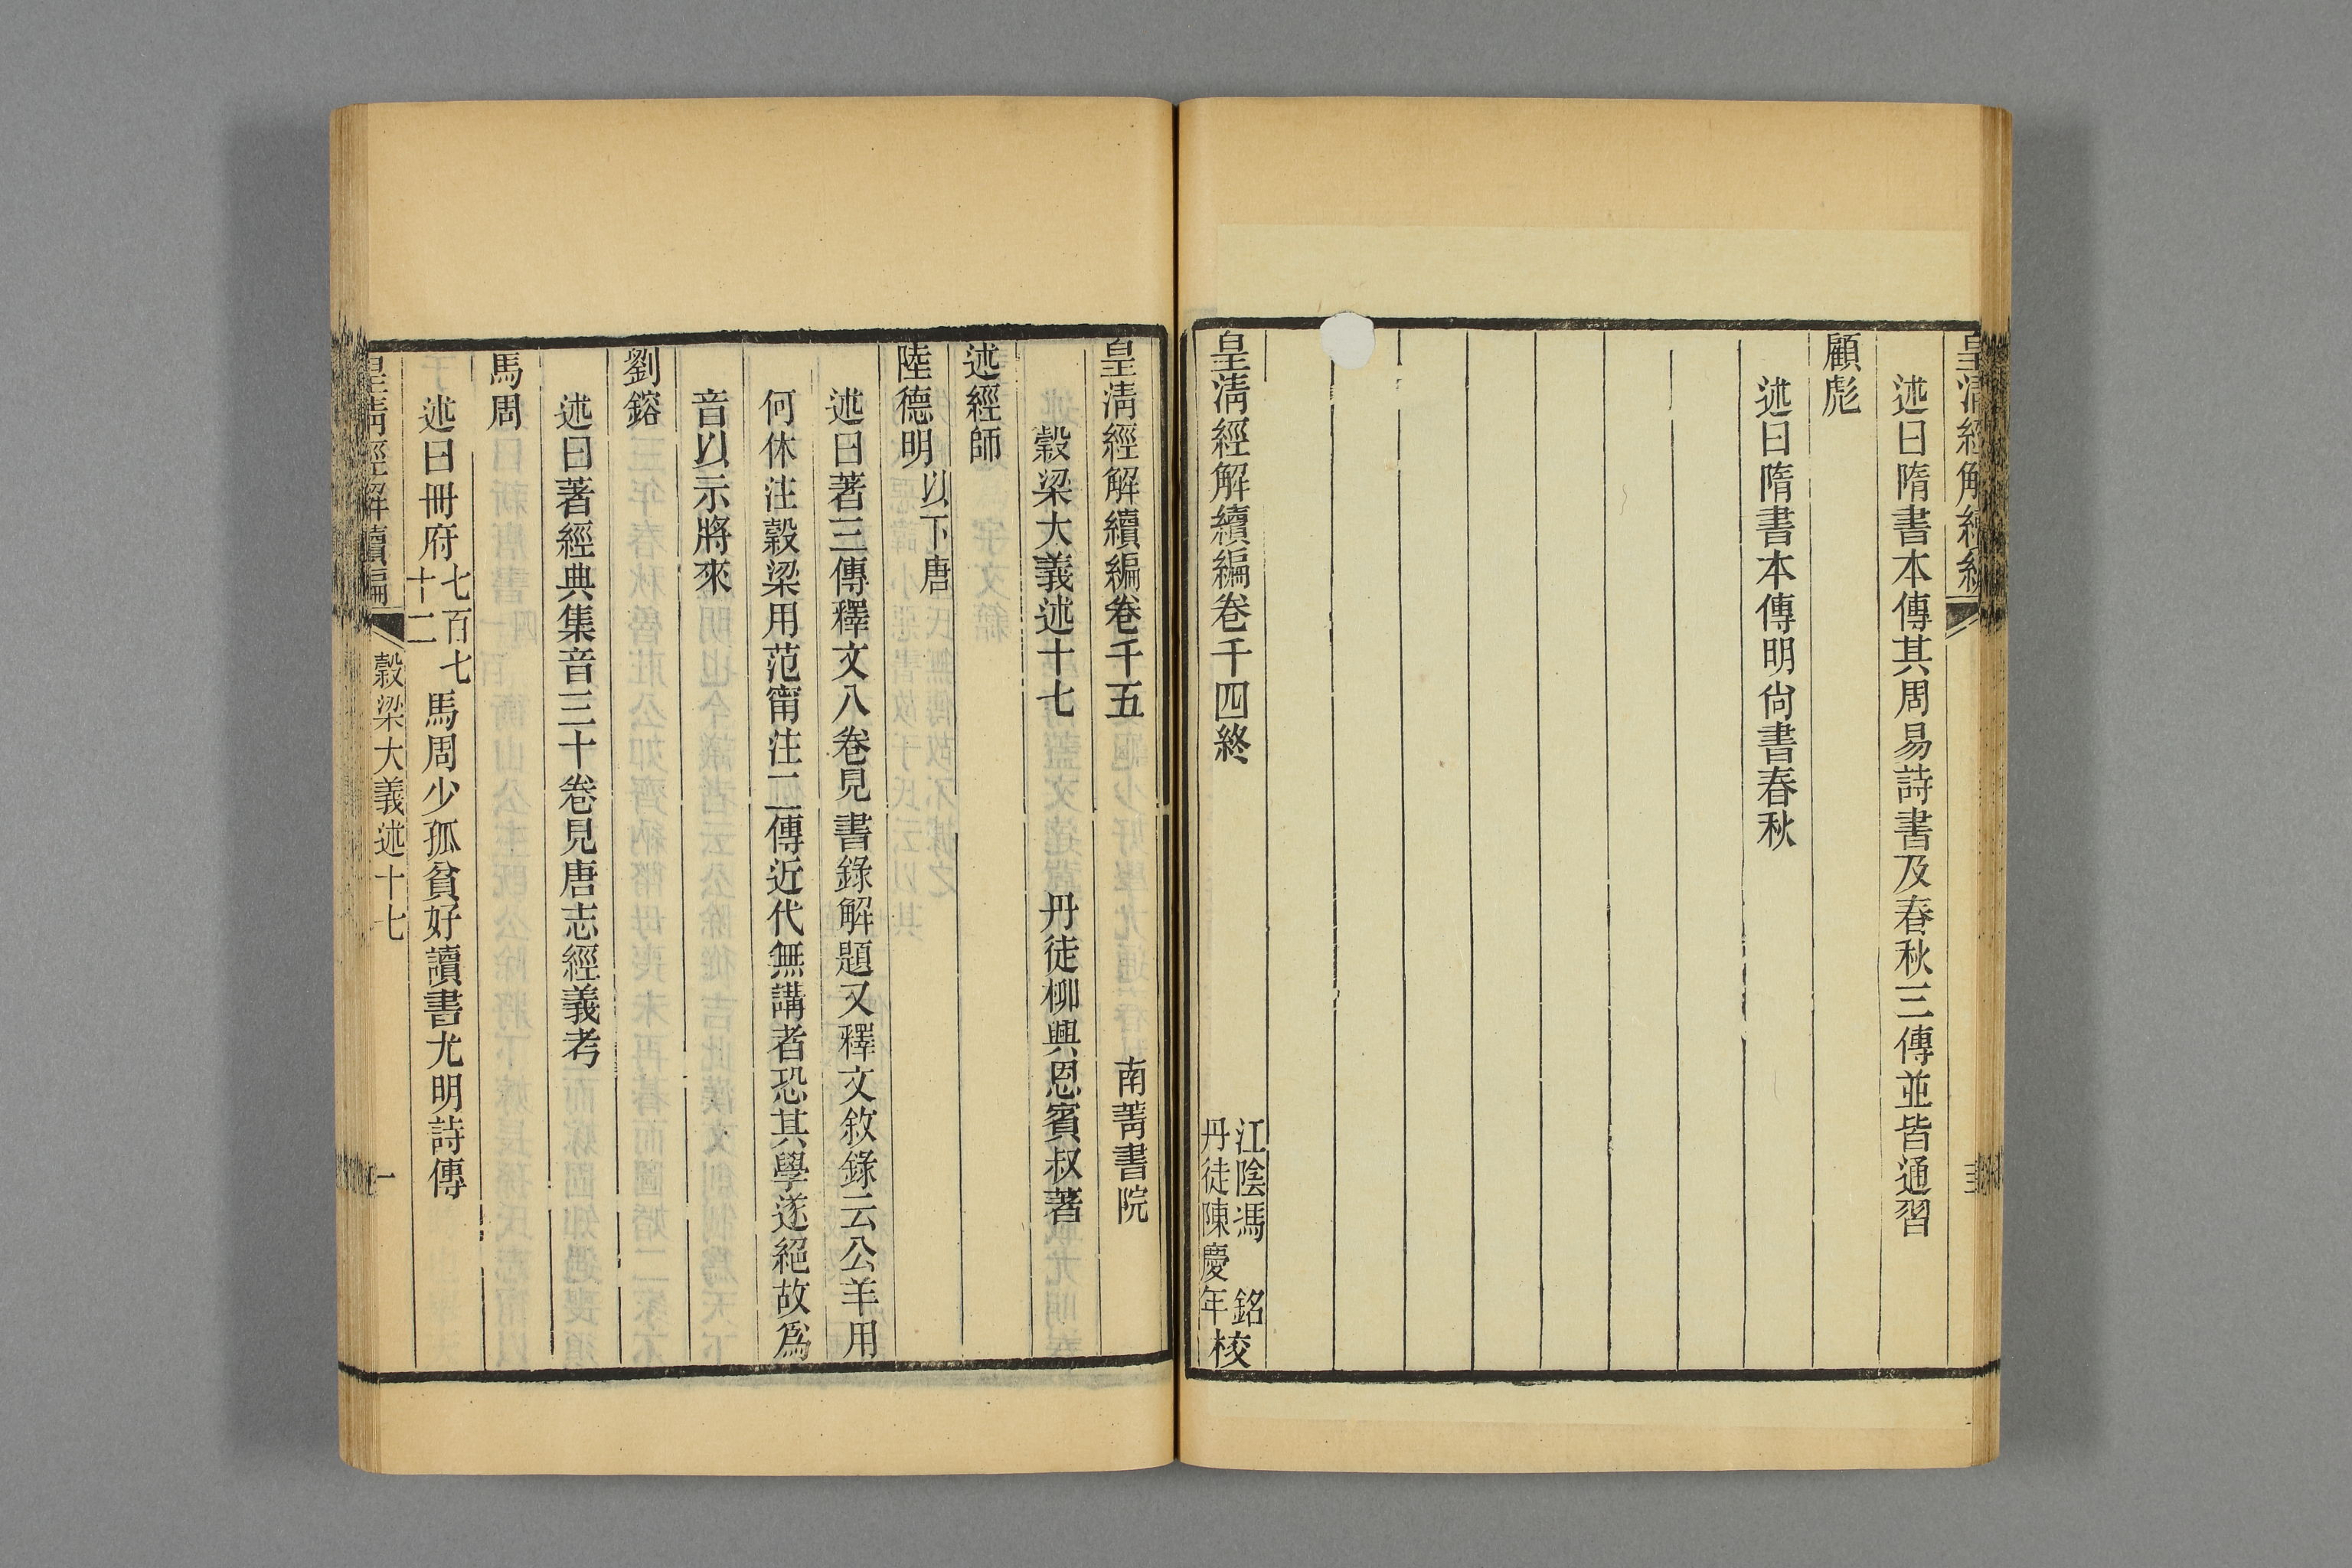 皇清經解續編
述曰隋書本傳其周易詩書及春秋三傳並皆通習
顧彪
述曰隋書本傳明尙書春秋
皇清經解續編卷千四終
江陰馮銘
丹徒陳慶年校
皇清經解續編卷千五
南菁書院
穀梁大義述十七
丹徒柳興恩賓叔著
述經師
陸德明以下唐
述曰著三傳釋文八卷見書錄解題又釋文敘錄云公羊用
何休注穀梁用范甯注二傳近代無講者恐其學遂絕故爲
音以示將來
劉鎔
述曰著經典集音三十卷見唐志經義考
馬周
述曰冊府七百七十二馬周少孤貧好讀書尤明詩傳
皇清經解續編
穀梁大義述十七
一